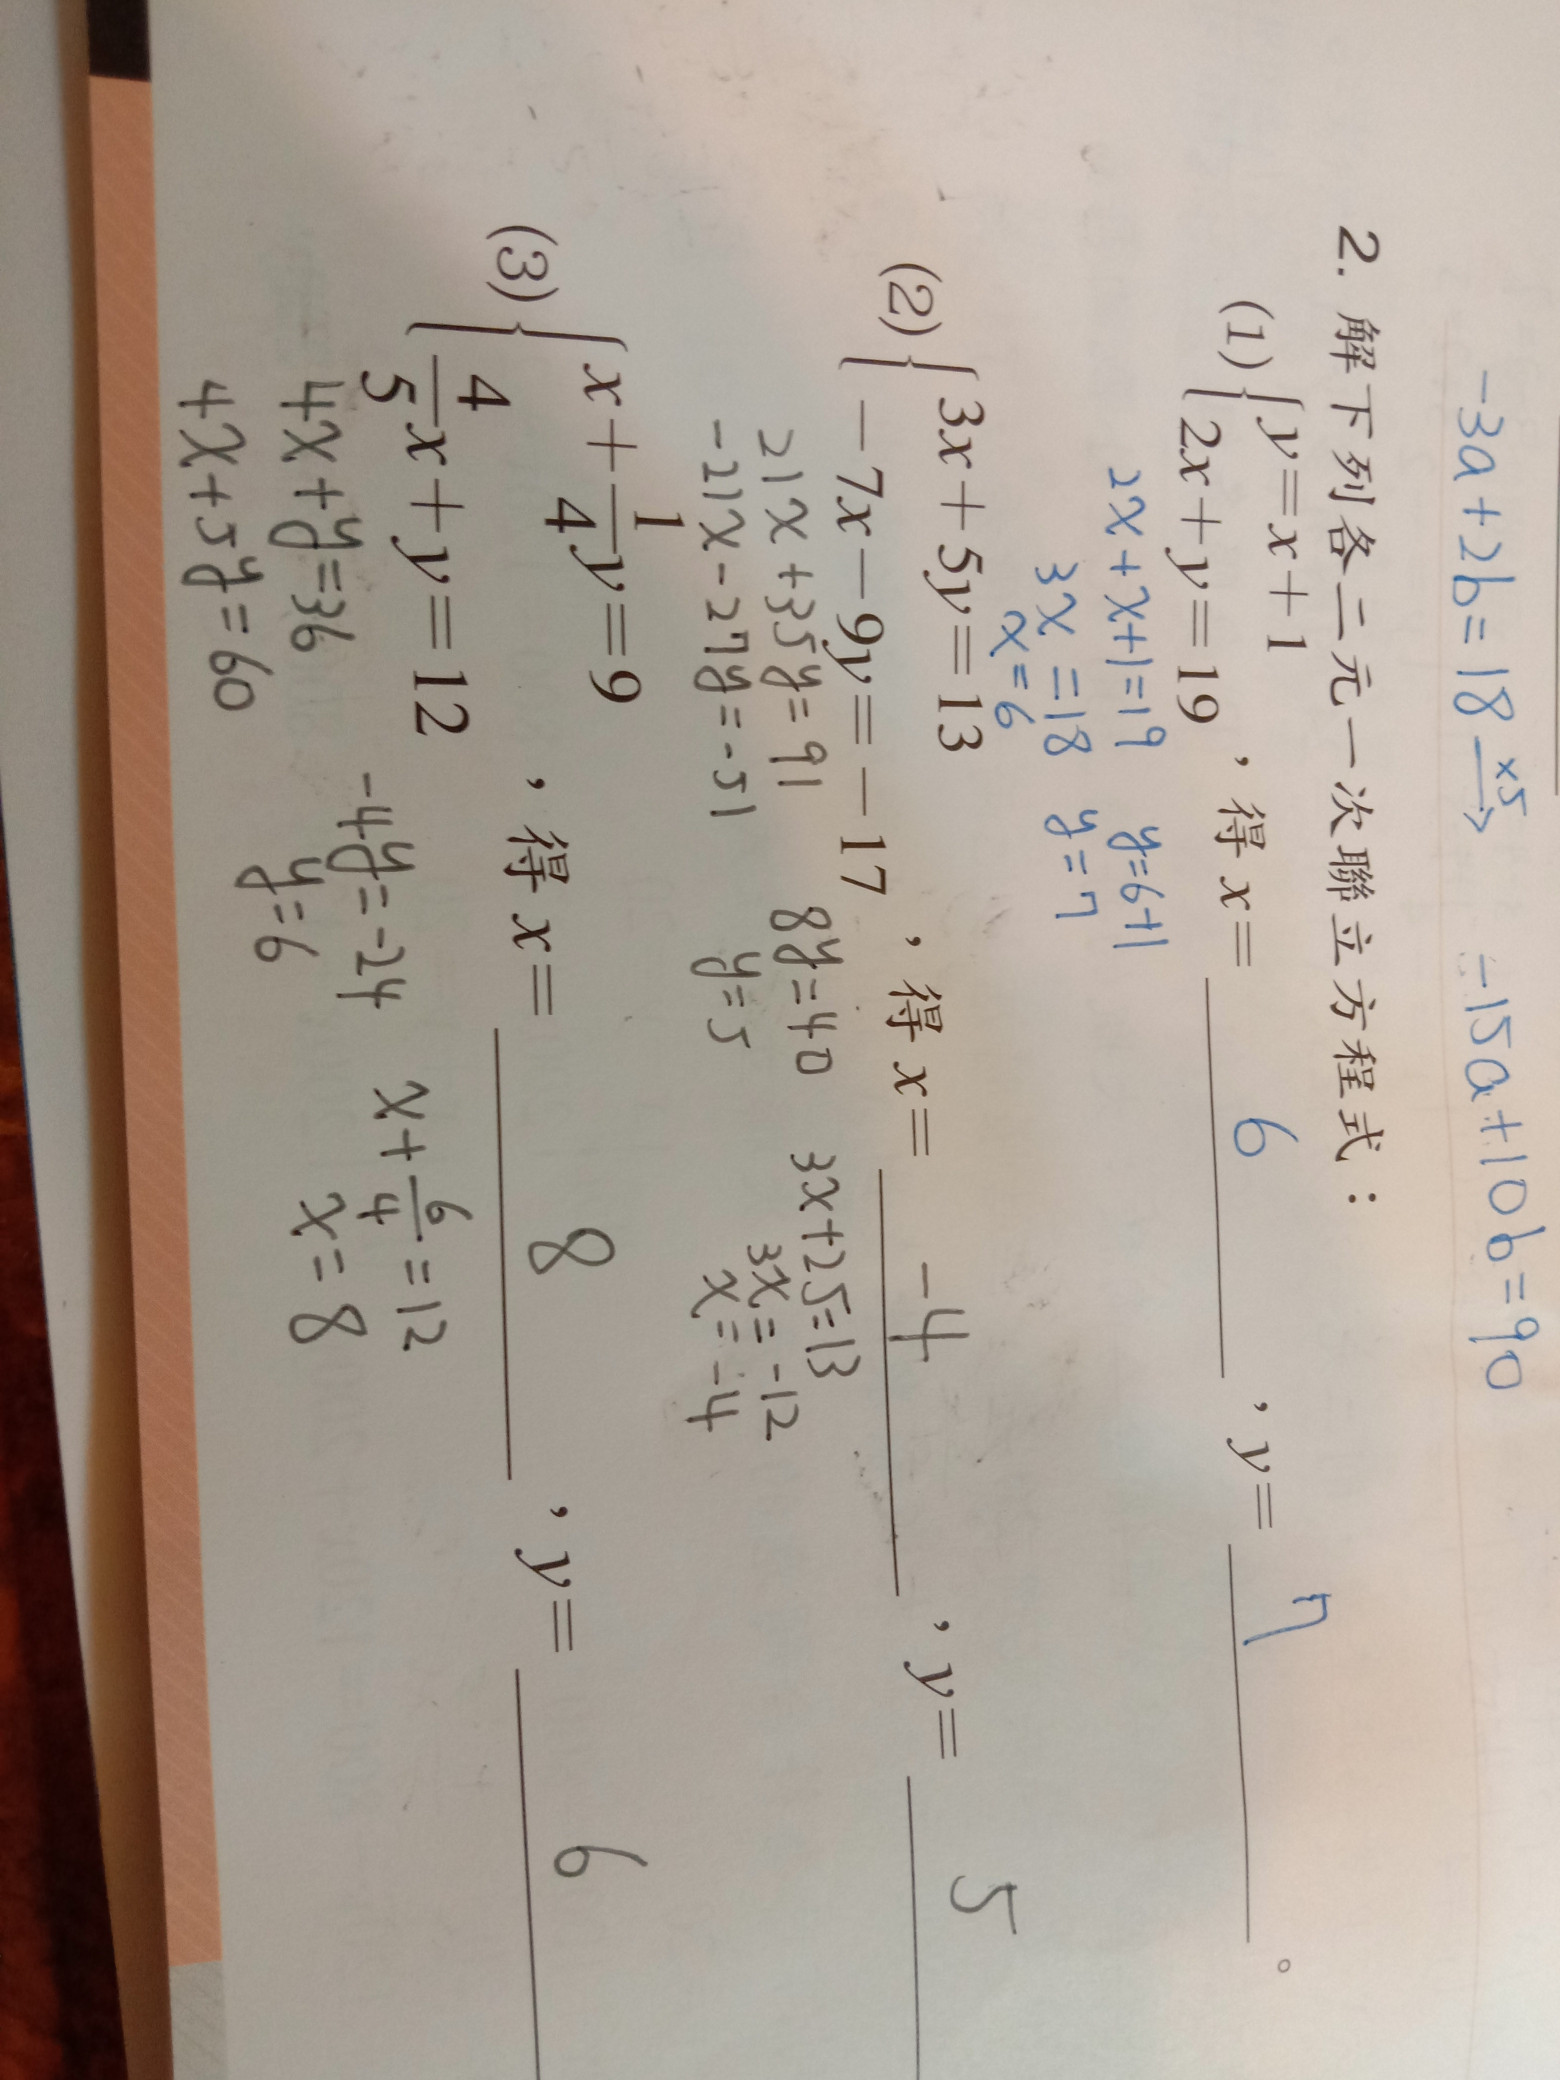 -3a+2b=18 ×5→ -15a+10b=90
2. 解下列各二元一次聯立方程式：
(1) { y=x+1
2x+y=19 ，得 x= 6 ，y= 7 。
2x+x+1=19 y=6+1
3x=18 y=7
x=6
(2) { 3x+5y=13
-7x-9y=-17 ，得 x= -4 ，y= 5
21x+35y=91 8y=40 3x+25=13
-21x-27y=-51 y=5 3x=-12
x=-4
(3) { x+1/4y=9
4/5x+y=12 ，得 x= 8 ，y= 6
4x+y=36 -4y=-24 x+6/4=12
4x+5y=60 y=6 x=8